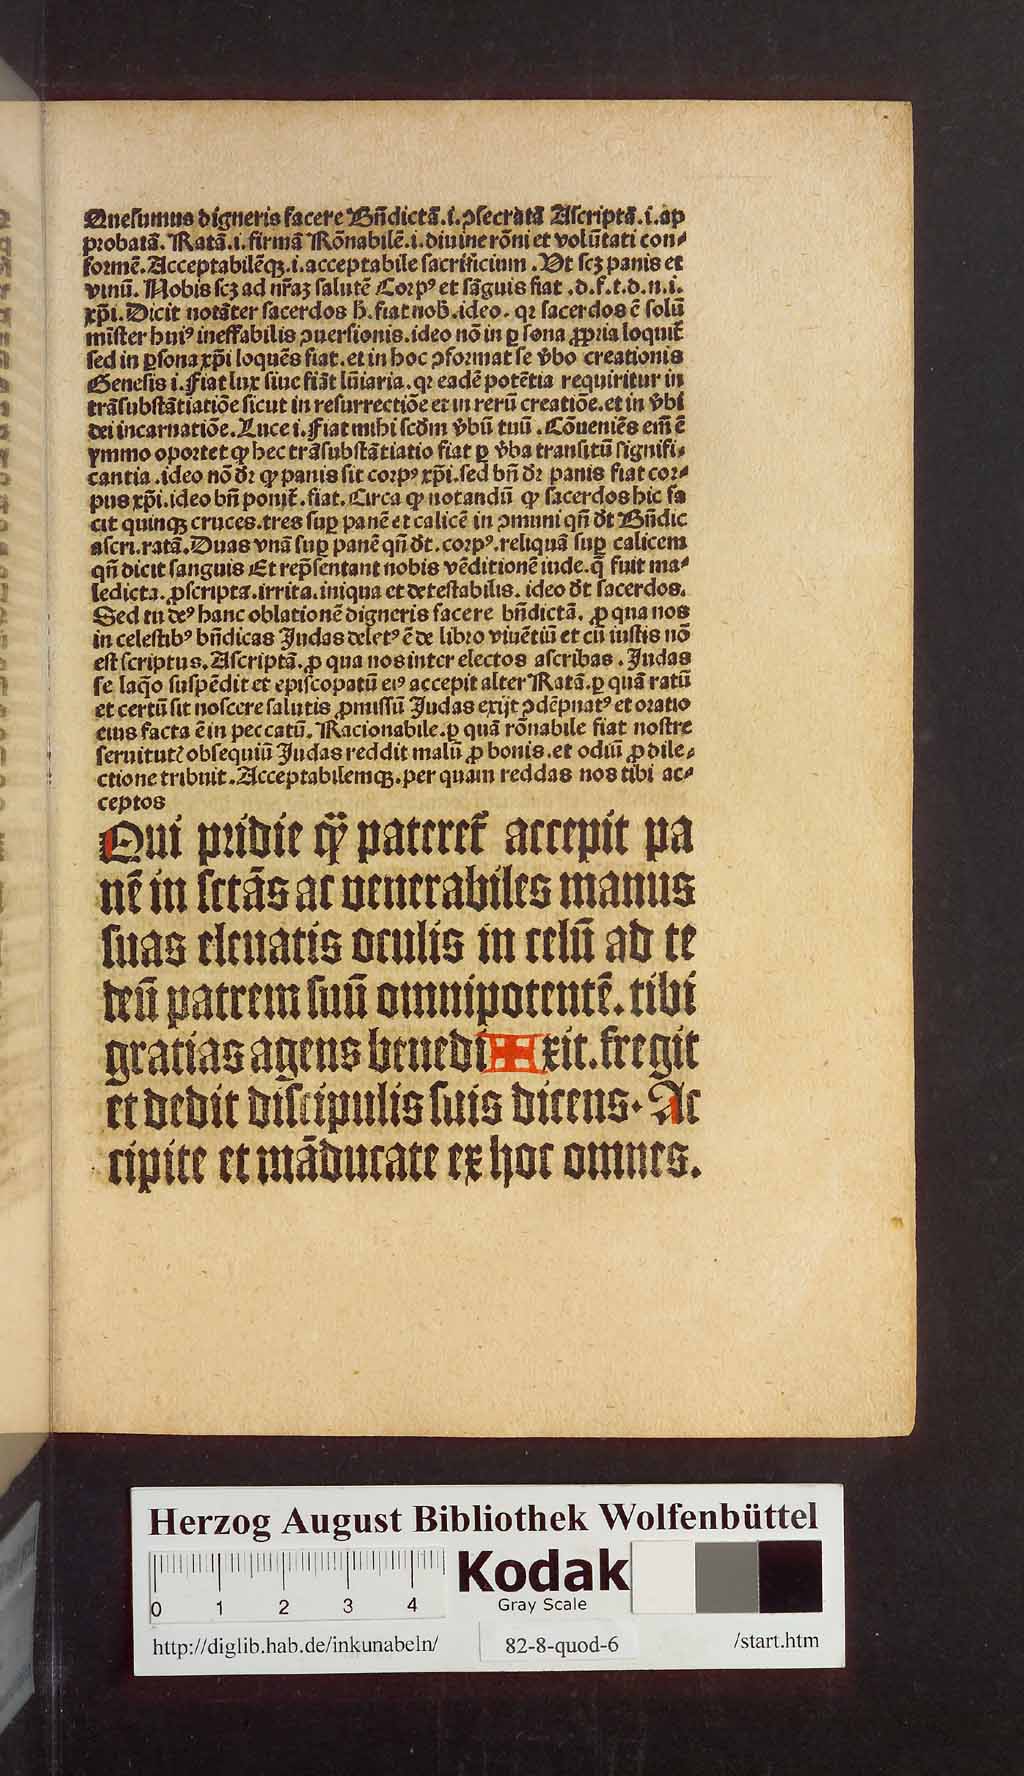 Quesumus digneris facere Bñdictã.i.ꝯsecratã Ascriptã.i.ap
probatã. Ratã.i.firmã Rõnabilẽ.i.diuine rõni et volũtati con⸗
formẽ. Acceptabilẽqꝫ.i.acceptabile sacrificium. Vt scꝫ panis et
vinũ. Nobis scꝫ ad nr̃aꝫ salutẽ Corpꝰ et sãguis fiat .d.f.t.d.n.i.
xp̃i. Dicit notãter sacerdos h̃.fiat nob̃.ideo. qꝛ sacerdos ẽ solũ
mĩster huiꝰ ineffabilis ꝯuersionis.ideo nõ in ꝑsona ꝓpria loquit̃
sed in ꝑsona xp̃i loquẽs fiat.et in hoc ꝯformat se v̾bo creationis
Genesis i. Fiat lux siue fiãt lũiaria.qꝛ eadẽ potẽtia requiritur in
trãsubstãtiatiõe sicut in resurrectiõe et in rerũ creatiõe.et in v̾bi
dei incarnatiõe. Luce i. Fiat mihi scðm v̾bũ tuũ. Cõueniẽs em̃ ẽ
ymmo oportet ꝙ hec trãsubstãtiatio fiat ꝑ v̾ba transitũ signifi⸗
cantia.ideo nõ dꝛ ꝙ panis sit corpꝰ xp̃i.sed bñ dꝛ panis fiat cor⸗
pus xp̃i.ideo bñ ponit̃.fiat. Circa ꝙ notandũ ꝙ sacerdos hic fa
cit quinqꝫ cruces.tres suꝑ panẽ et calicẽ in ꝯmuni qñ dt̃ Bñdic
ascri.ratã. Duas vnã suꝑ panẽ qñ dt̃.corpꝰ.reliquã suꝑ calicem
qñ dicit sanguis Et rep̃sentant nobis vẽditionẽ iude.q̃ fuit ma⸗
ledicta. ꝓscripta.irrita.iniqua et detestabilis. ideo dt̃ sacerdos.
Sed tu deꝰ hanc oblationẽ digneris facere bñdictã. ꝓ qua nos
in celestibꝰ bñdicas Judas deletꝰ ẽ de libro viuẽtiũ et cũ iustis nõ
est scriptus. Ascriptã. ꝓ qua nos inter electos ascribas. Judas
se laq̃o suspẽdit et episcopatũ eiꝰ accepit alter Ratã.ꝑ quã ratũ
et certũ sit noscere salutis ꝓmissũ Judas exijt ꝯdẽpnatꝰ et oratio
eius facta ẽ in peccatũ. Racionabile.ꝑ quã rõnabile fiat nostre
seruitutꝭ obsequiũ Judas reddit malũ ꝓ bonis.et odiũ ꝓ dile⸗
ctione tribuit. Acceptabilemqꝫ.per quam reddas nos tibi ac⸗
ceptos
Qui pridie q̃ pateret̃ accepit pa
nẽ in sctãs ac venerabiles manus
suas eleuatis oculis in celũ ad te
deũ patrem suũ omnipotentẽ. tibi
gratias agens benedi✠xit. fregit
et dedit discipulis suis dicens. Ac
cipite et mãducate ex hoc omnes.
Herzog August Bibliothek Wolfenbüttel
0 1 2 3 4
Kodak
Gray Scale
http://diglib.hab.de/inkunabeln/ 82-8-quod-6 /start.htm